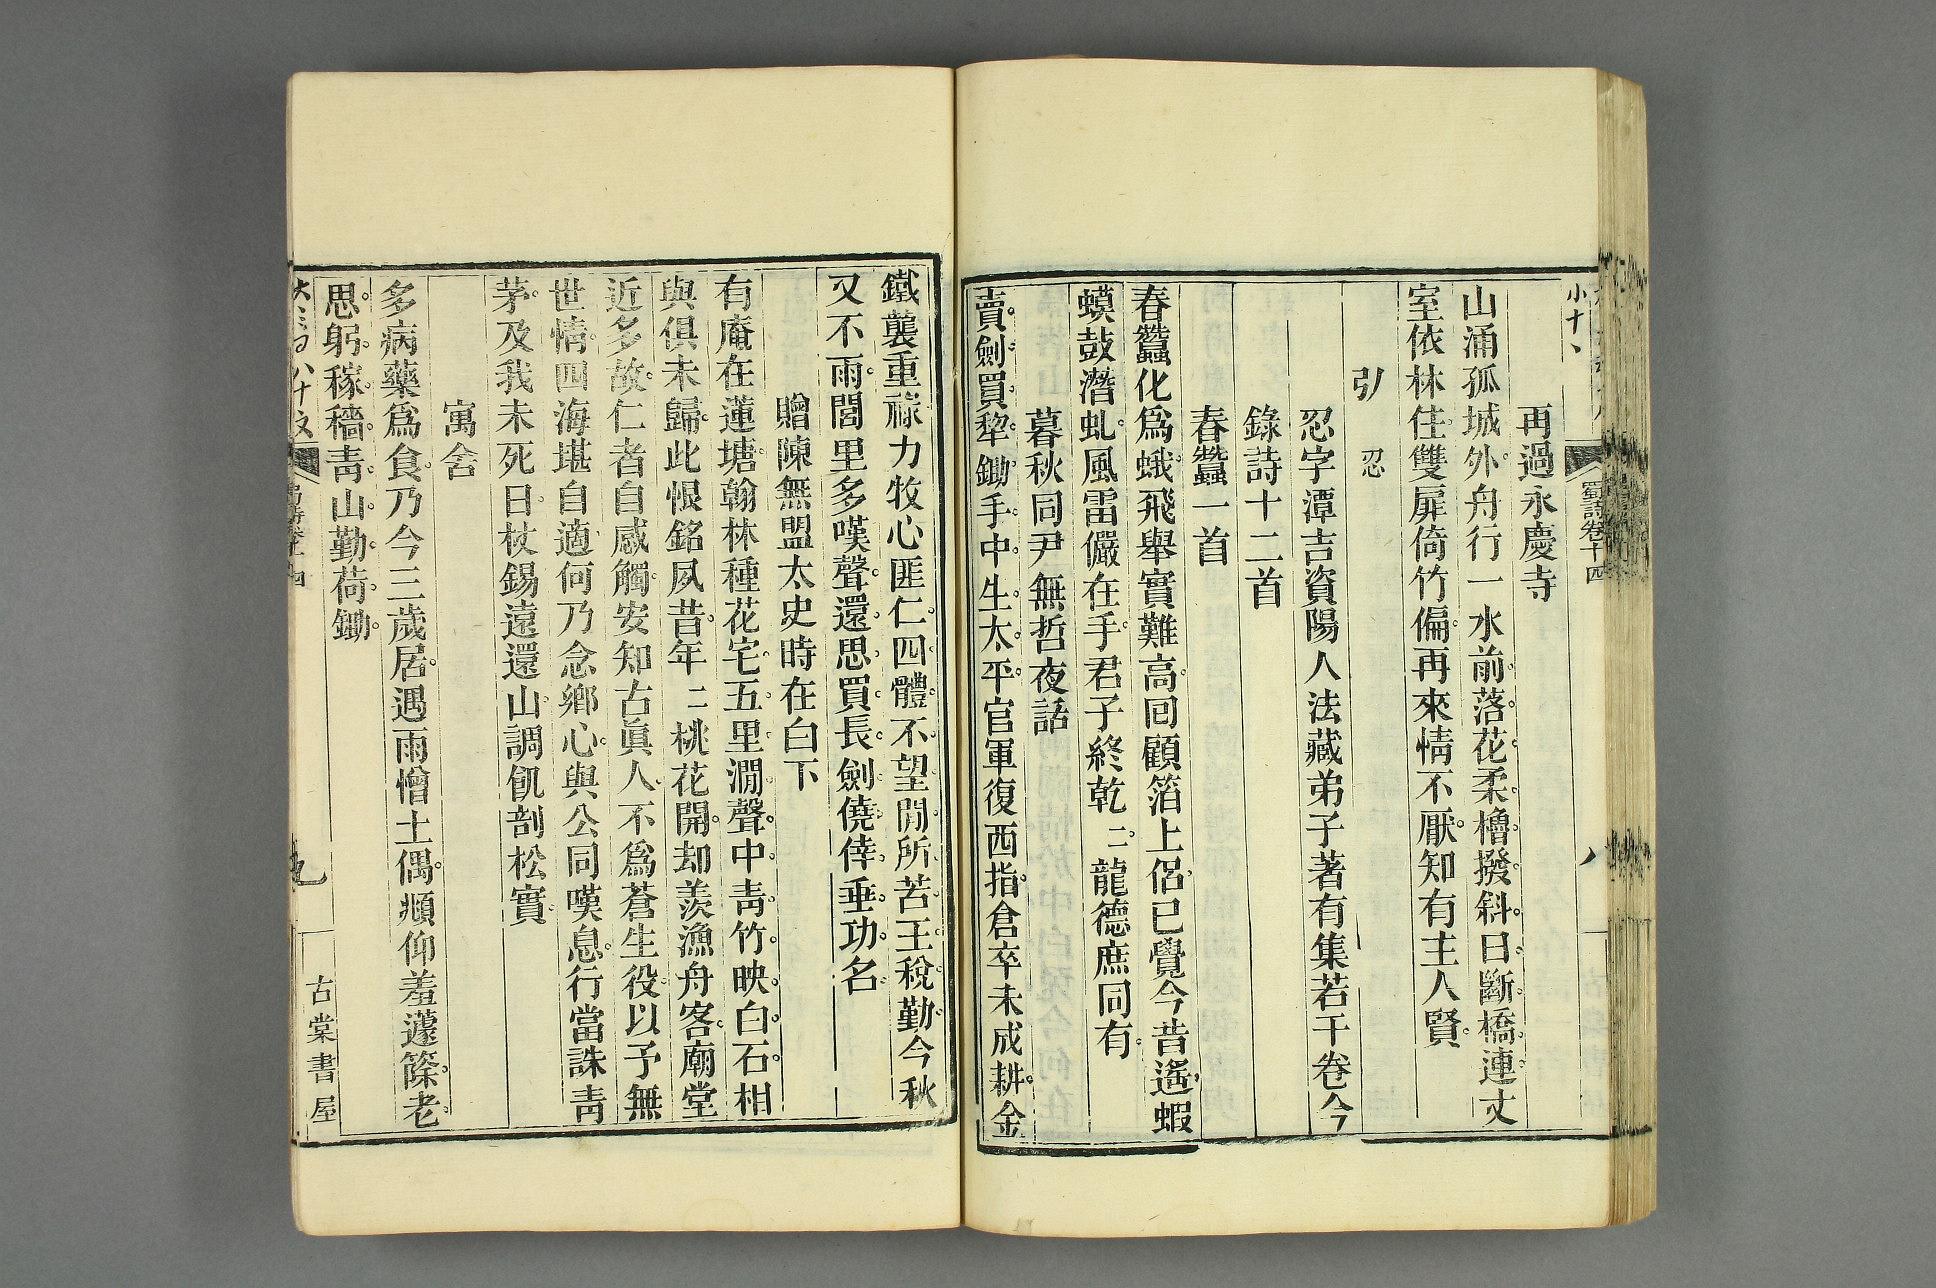 再過永慶寺
山涌孤城外舟行一水前落花柔櫓撥斜日斷橋連丈
室依林住雙扉倚竹偏再來情不厭知有主人賢
引忍
忍字潭吉資陽人法藏弟子著有集若干卷今
錄詩十二首
春蠶一首
春蠶化爲蛾飛舉實難高回顧箔上侶已覺今昔遙蝦
蟆鼓潛虬風雷儼在手君子終乾〻龍德庶同有
暮秋同尹無哲夜話
賣劍買犂鋤手中生太平官軍復西指倉卒未成耕金
蜀詩卷十四
八
鐵襲重祿力牧心匪仁四體不望閒所苦王稅勤今秋
又不雨閭里多嘆聲還思買長劍僥倖垂功名
贈陳無盟太史時在白下
有庵在蓮塘翰林種花宅五里澗聲中靑竹映白石相
與俱未歸此恨銘夙昔年〻桃花開却羨漁舟客廟堂
近多故仁者自感觸安知古眞人不爲蒼生役以予無
世情四海堪自適何乃念鄉心與公同嘆息行當誅靑
茅及我未死日杖錫遠還山調飢剖松實
寓舍
多病藥爲食乃今三歲居遇雨憎土偶頫仰羞蘧篨老
思躬稼穡靑山勤荷鋤
九
古棠書屋